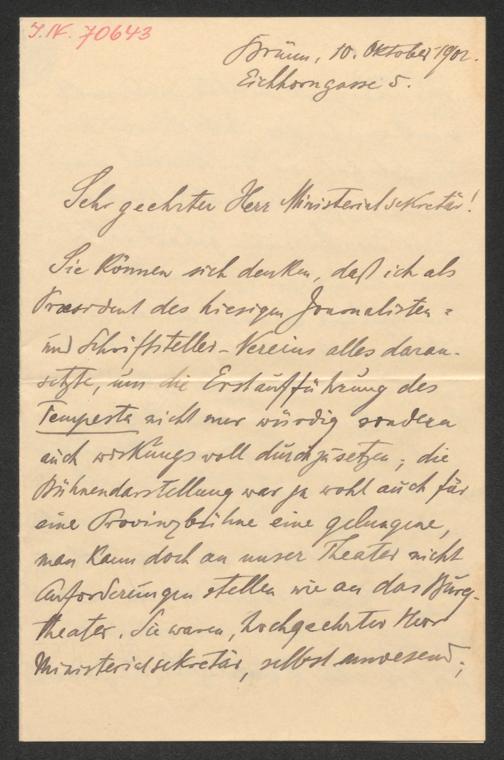 J.N. 70643
Brünn, 10. Oktober 1902.
Eichhorngasse 5.
Sehr geehrter Herr Ministerialsekretär!
Sie können sich denken, daß ich als
Præsident des hiesigen Journalisten=
und Schriftsteller-Vereins alles daran-
setzte, um die Erstaufführung des
Tempesta nicht nur würdig sondern
auch wirkungsvoll durchzusetzen; die
Bühnendarstellung war ja wohl auch für
eine Provinzbühne eine gelungene,
man kann doch an unser Theater nicht
Anforderungen stellen wie an das Burg-
theater. Sie waren, hochgeehrter Herr
Ministerialsekretär, selbst anwesend;